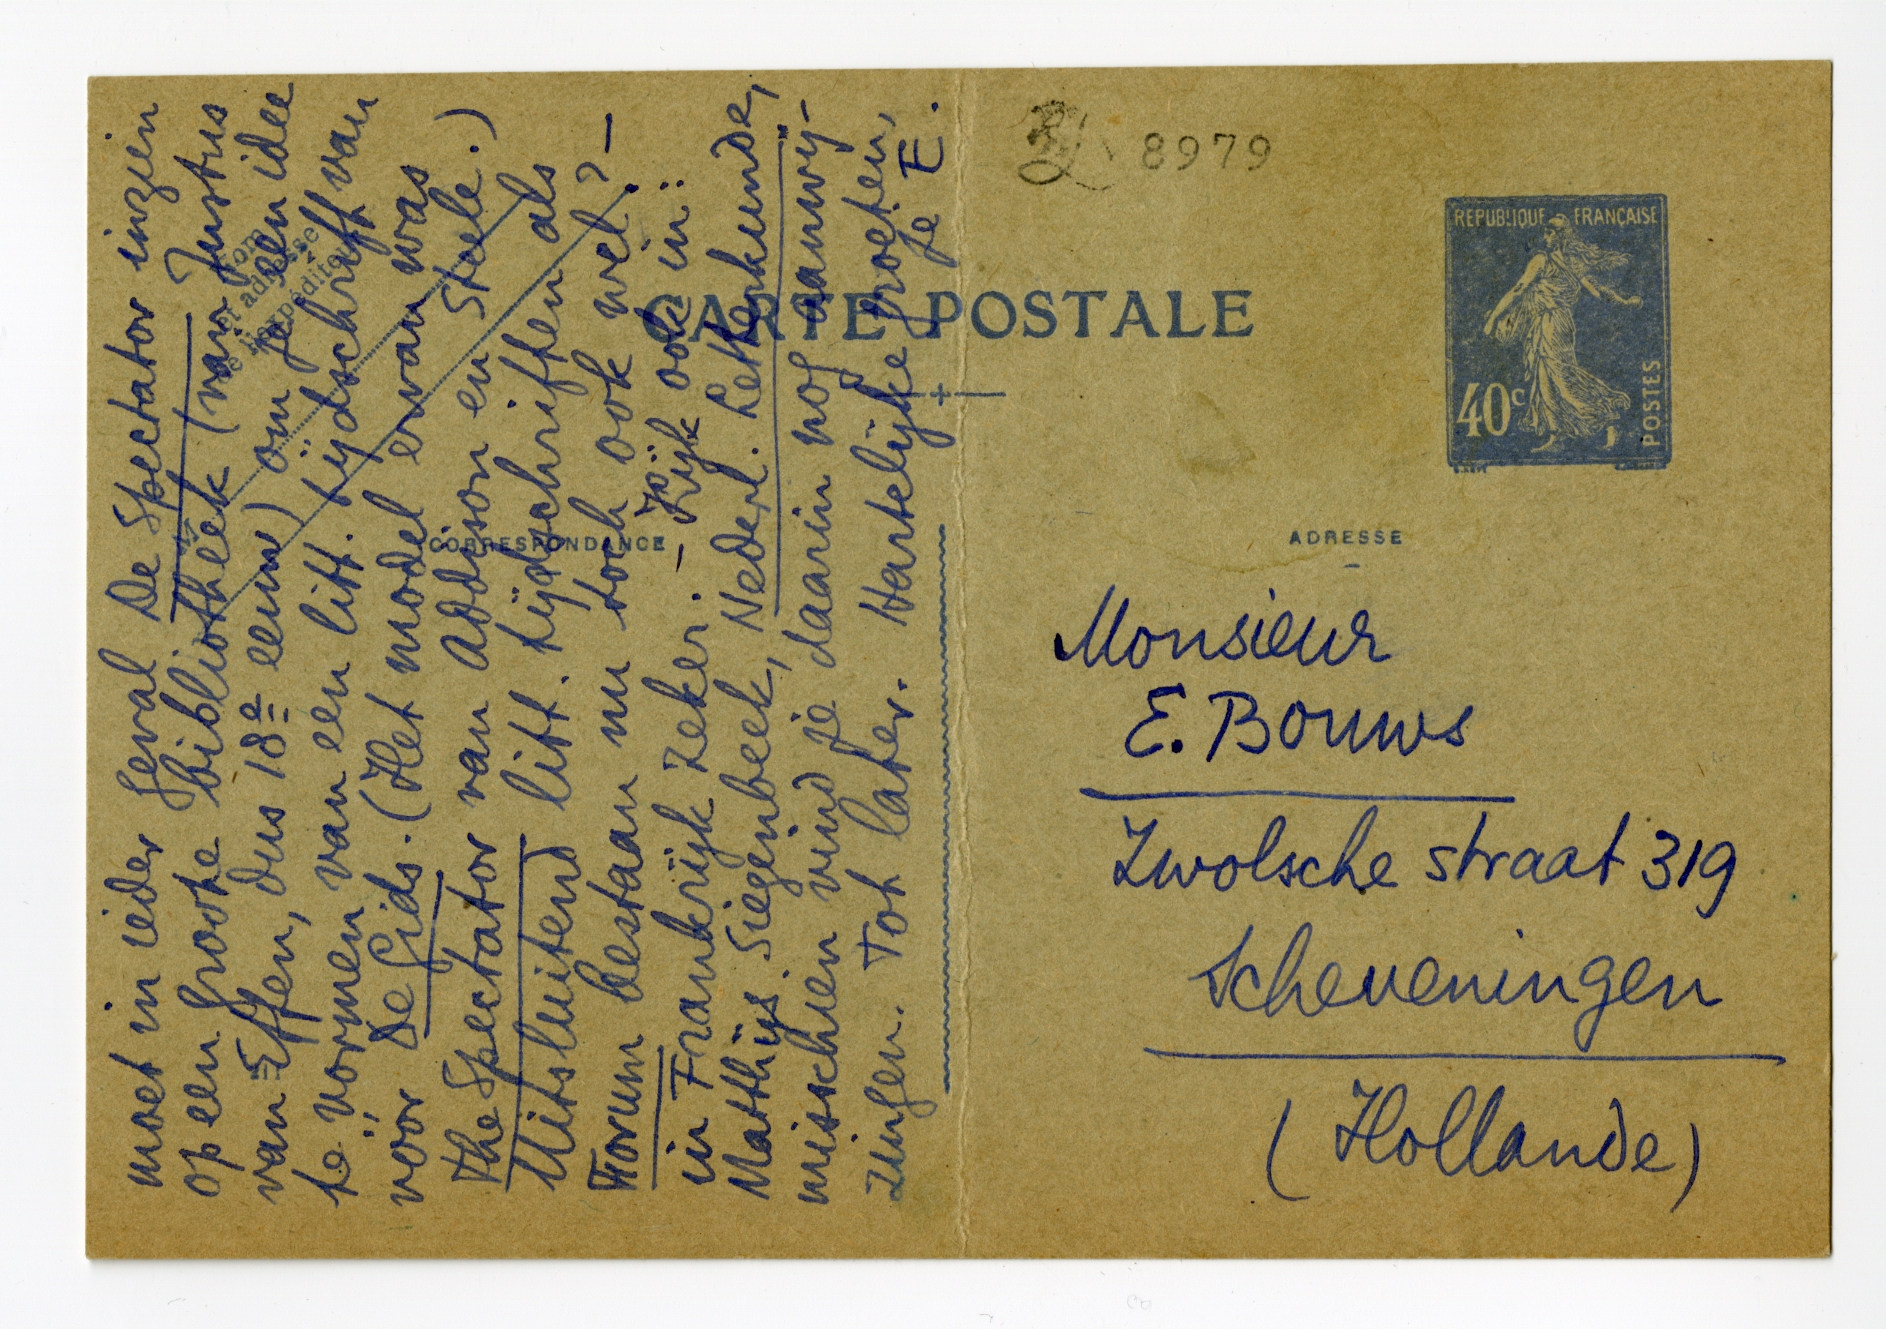 moet in ieder geval De Spectator inzien
op een groote bibliotheek (van Justus
van Effen, dus 18e eeuw) om je een idee
te vormen van een litt. tijdschrift van
vóór De Gids. (Het model ervan was
The Spectator van Addison en Steele.)
Uitsluitend litt. tijdschriften als
Forum bestaan nu toch ook wel? —
in Frankrijk zeker. — Kijk ook in:
Matthijs Siegenbeek, Nederl. Letterkunde,
misschien vind je daarin nog aanwij-
zingen. Tot later. Hartelijke groeten,
je E.
Nom
et adresse
de l'expéditeur
CORRESPONDANCE
CARTE POSTALE
8979
REPUBLIQUE FRANÇAISE
40c
POSTES
ADRESSE
Monsieur
E. Bouws
Zwolsche straat 319
Scheveningen
(Hollande)